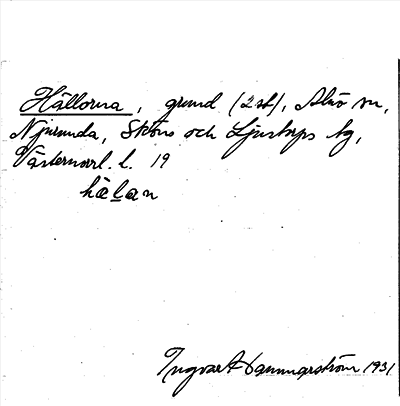 Hällorna, grund (2 st), Alnö sn,
Njurunda, Sköns och Ljustorps tg,
Västernorrl. l. 19
hälan
Ingvar Hammarström 1931